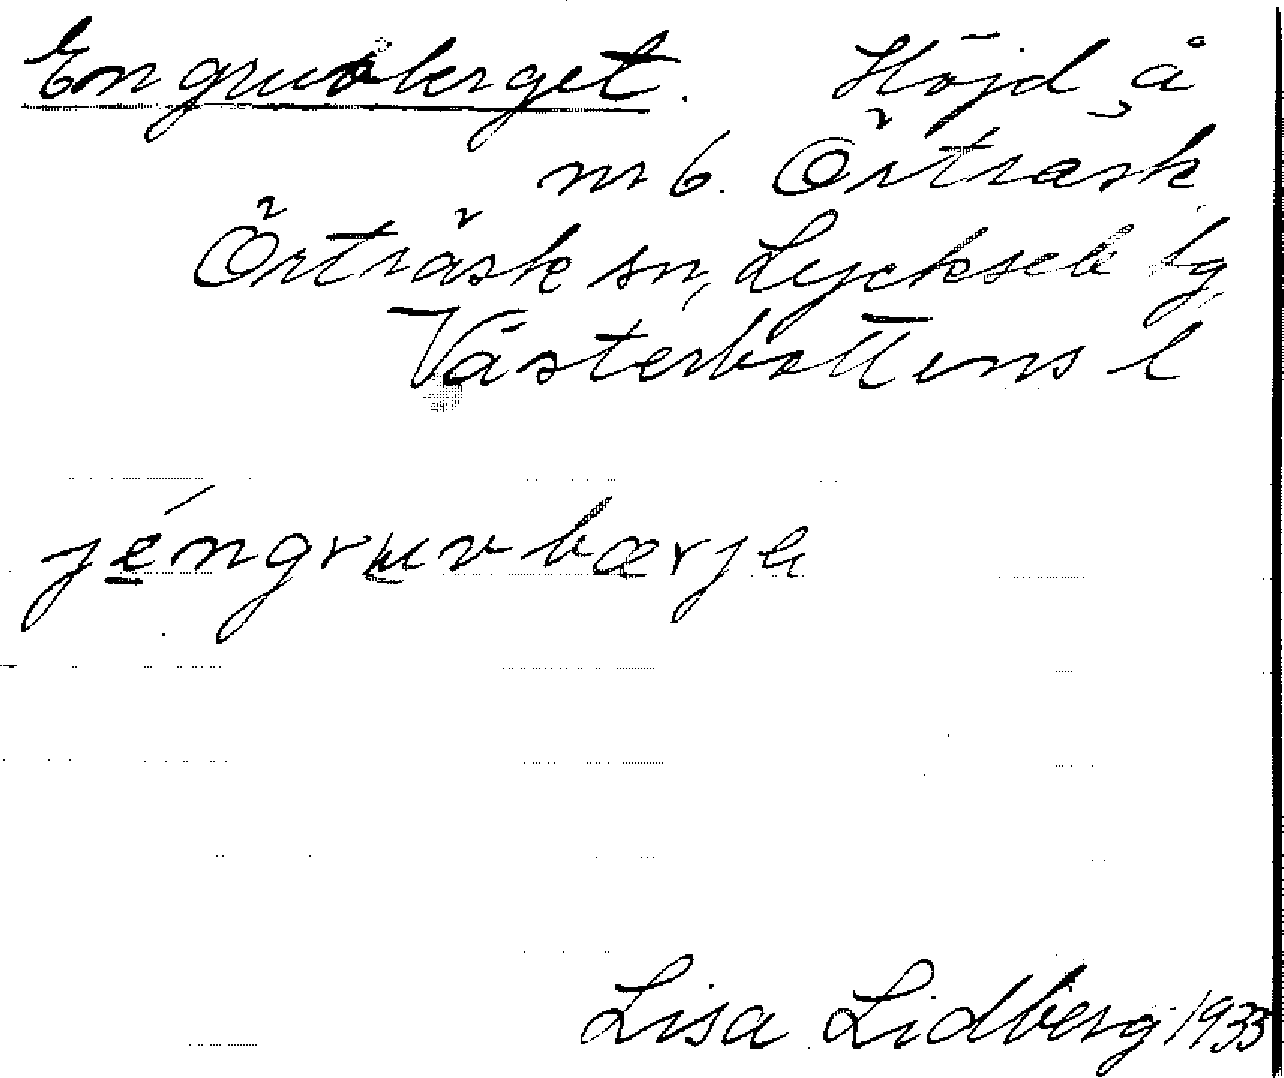 Engruvberget. Höjd å
nr 6. Örträsk
Örträsk sn, Lycksele lg
Västerbottens l
jéngruvbærjə
Lisa Lidberg 1933